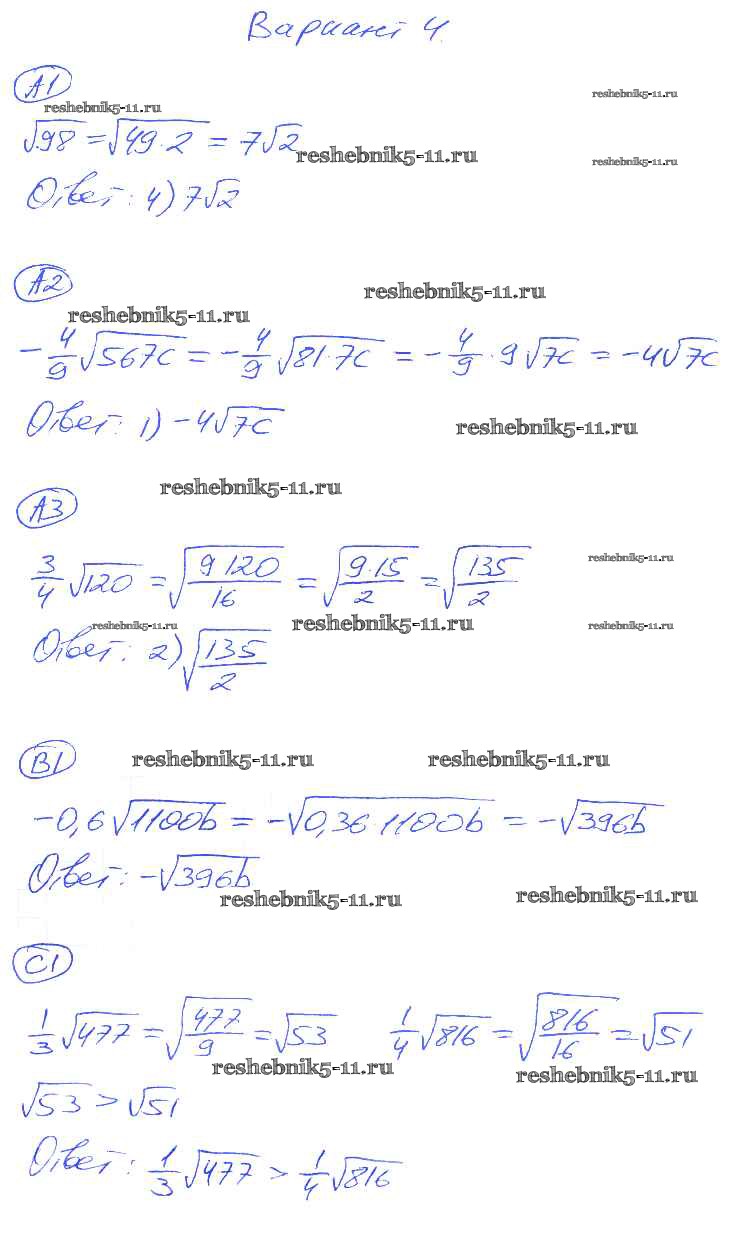 Вариант 4.
А1
reshebnik5-11.ru
reshebnik5-11.ru
√98 = √49·2 = 7√2
reshebnik5-11.ru
reshebnik5-11.ru
Ответ: 4) 7√2
А2
reshebnik5-11.ru
reshebnik5-11.ru
-4/9 √567c = -4/9 √81·7c = -4/9 · 9√7c = -4√7c
Ответ: 1) -4√7c
reshebnik5-11.ru
reshebnik5-11.ru
А3
reshebnik5-11.ru
3/4 √120 = √(9 120/16) = √(9·15/2) = √(135/2)
reshebnik5-11.ru
reshebnik5-11.ru
reshebnik5-11.ru
Ответ: 2) √(135/2)
В1
reshebnik5-11.ru
reshebnik5-11.ru
-0,6√1100b = -√0,36·1100b = -√396b
Ответ: -√396b
reshebnik5-11.ru
reshebnik5-11.ru
С1
1/3 √477 = √(477/9) = √53 1/4 √816 = √(816/16) = √51
reshebnik5-11.ru
reshebnik5-11.ru
√53 > √51
Ответ: 1/3 √477 > 1/4 √816